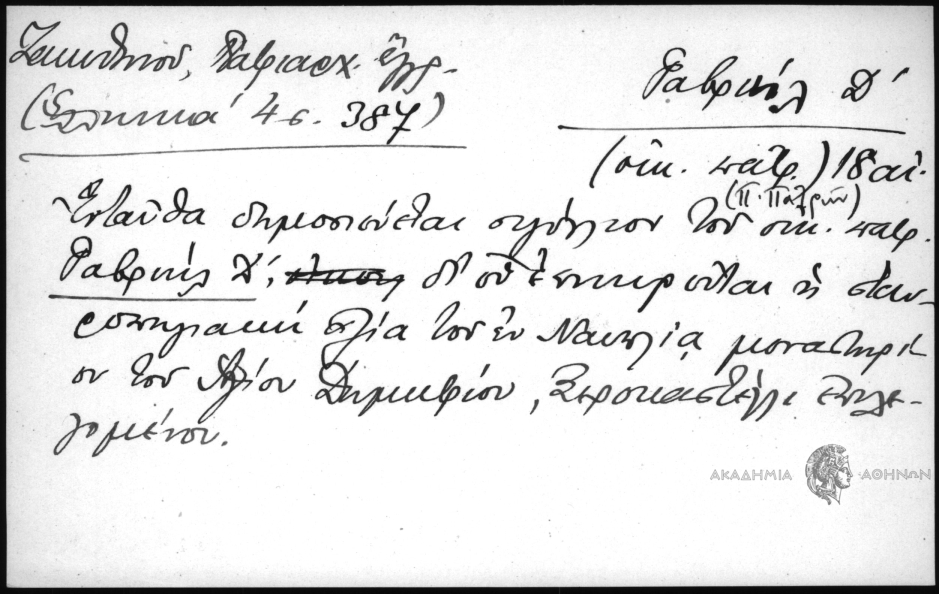 Ζακυθηνοῦ, Πατριαρχ. ἔγγρ.
(Ἑλληνικά 4 σ. 387)
Γαβριήλ Δ΄
(οἰκ. πατρ.) 18 αἰ.
(Π. Πατρῶν)
Ἐνταῦθα δημοσιεύεται σιγίλλιον τοῦ οἰκ. πατρ.
Γαβριήλ Δ΄, δι' οὗ ἐπικυροῦται ἡ σταυ-
ροπηγιακή ἀξία τοῦ ἐν Ναυπλίᾳ μοναστηρί-
ου τοῦ Ἁγίου Δημητρίου, Ξεροκαστέλλι ἐπιλε-
γομένου.
ΑΚΑΔΗΜΙΑ ΑΘΗΝΩΝ